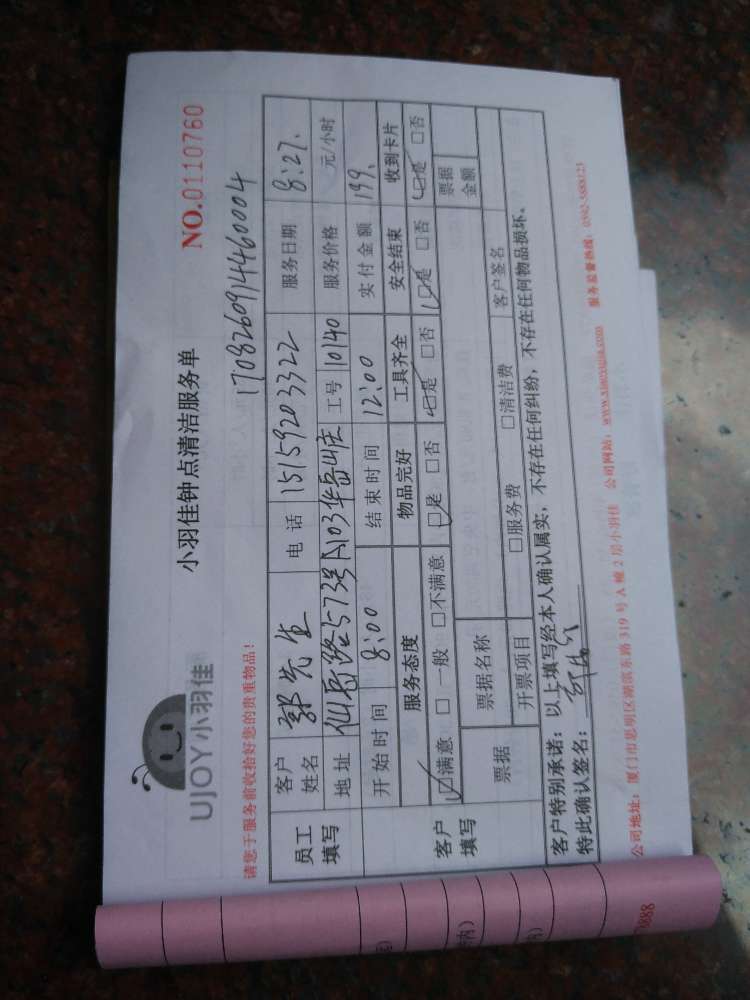 UJOY小羽佳
小羽佳钟点清洁服务单
NO.0110760
请您于服务前收拾好您的贵重物品！
17082609144460004
员工填写
客户姓名 郭先生 电话 15159203322 服务日期 8:27.
地址 仙岳路573号A103华岳山庄 工号 10140 服务价格 元/小时
开始时间 8:00 结束时间 12:00 实付金额 199.
客户填写
服务态度 物品完好 工具齐全 安全结束 收到卡片
☑满意 □一般 □不满意 ☑是 □否 ☑是 □否 ☑是 □否 ☑是 □否
票据 票据名称 票据金额
开票项目 □服务费 □清洁费 客户签名
客户特别承诺：以上填写经本人确认属实，不存在任何纠纷，不存在任何物品损坏。
特此确认签名：
公司地址：厦门市思明区湖滨东路319号A幢2层小羽佳 公司网站：www.xiaoyujia.com 服务监督热线：0592-5888123